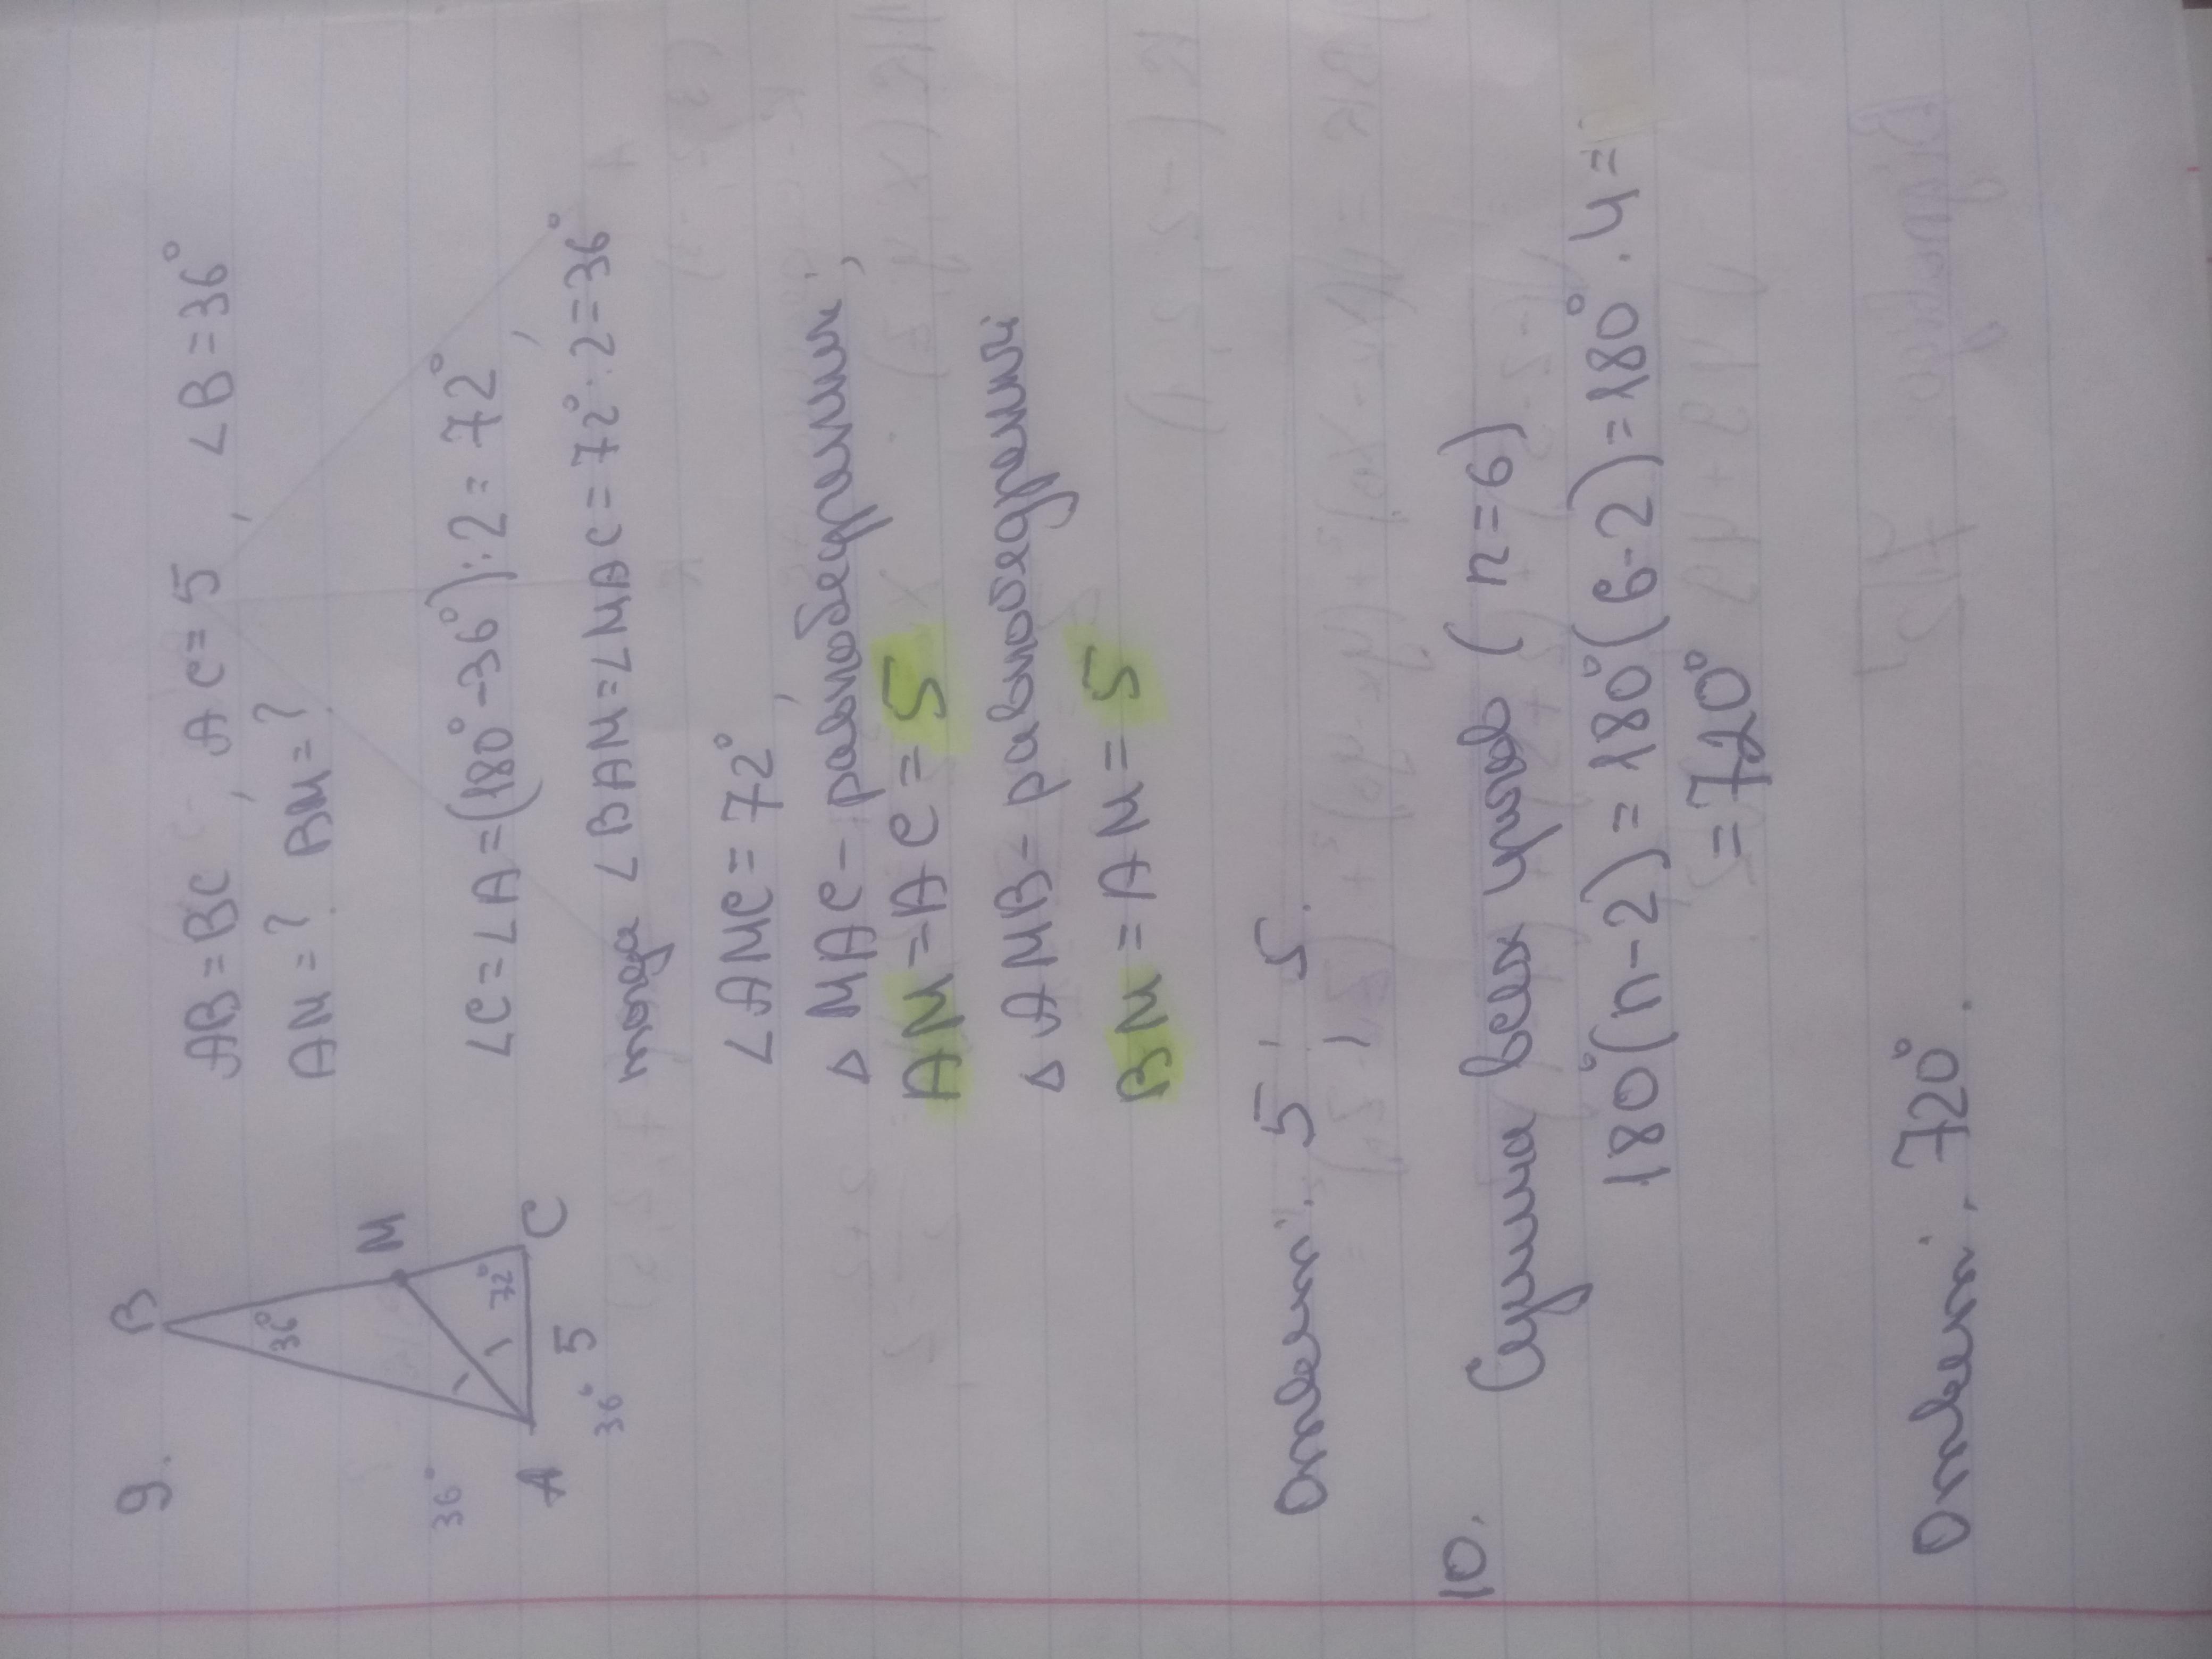 9.
B
36°
M
36°
72°
A
C
5
36°
AB = BC, AC = 5, ∠B = 36°
AM = ? BM = ?
∠C = ∠A = (180° - 36°) : 2 = 72°,
тогда ∠BAM = ∠MAC = 72° : 2 = 36°
∠AMC = 72°,
△ MAC - равнобедренный,
AM = AC = 5
△ AMB - равнобедренный
BM = AM = 5
Ответ: 5; 5.
10.
Сумма всех углов (n = 6)
180°(n-2) = 180°(6-2) = 180° · 4 =
= 720°
Ответ: 720°.